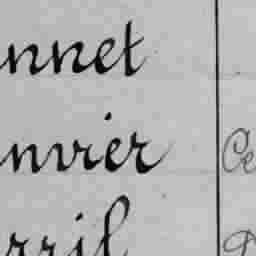 nnet
nvier Ce
rril